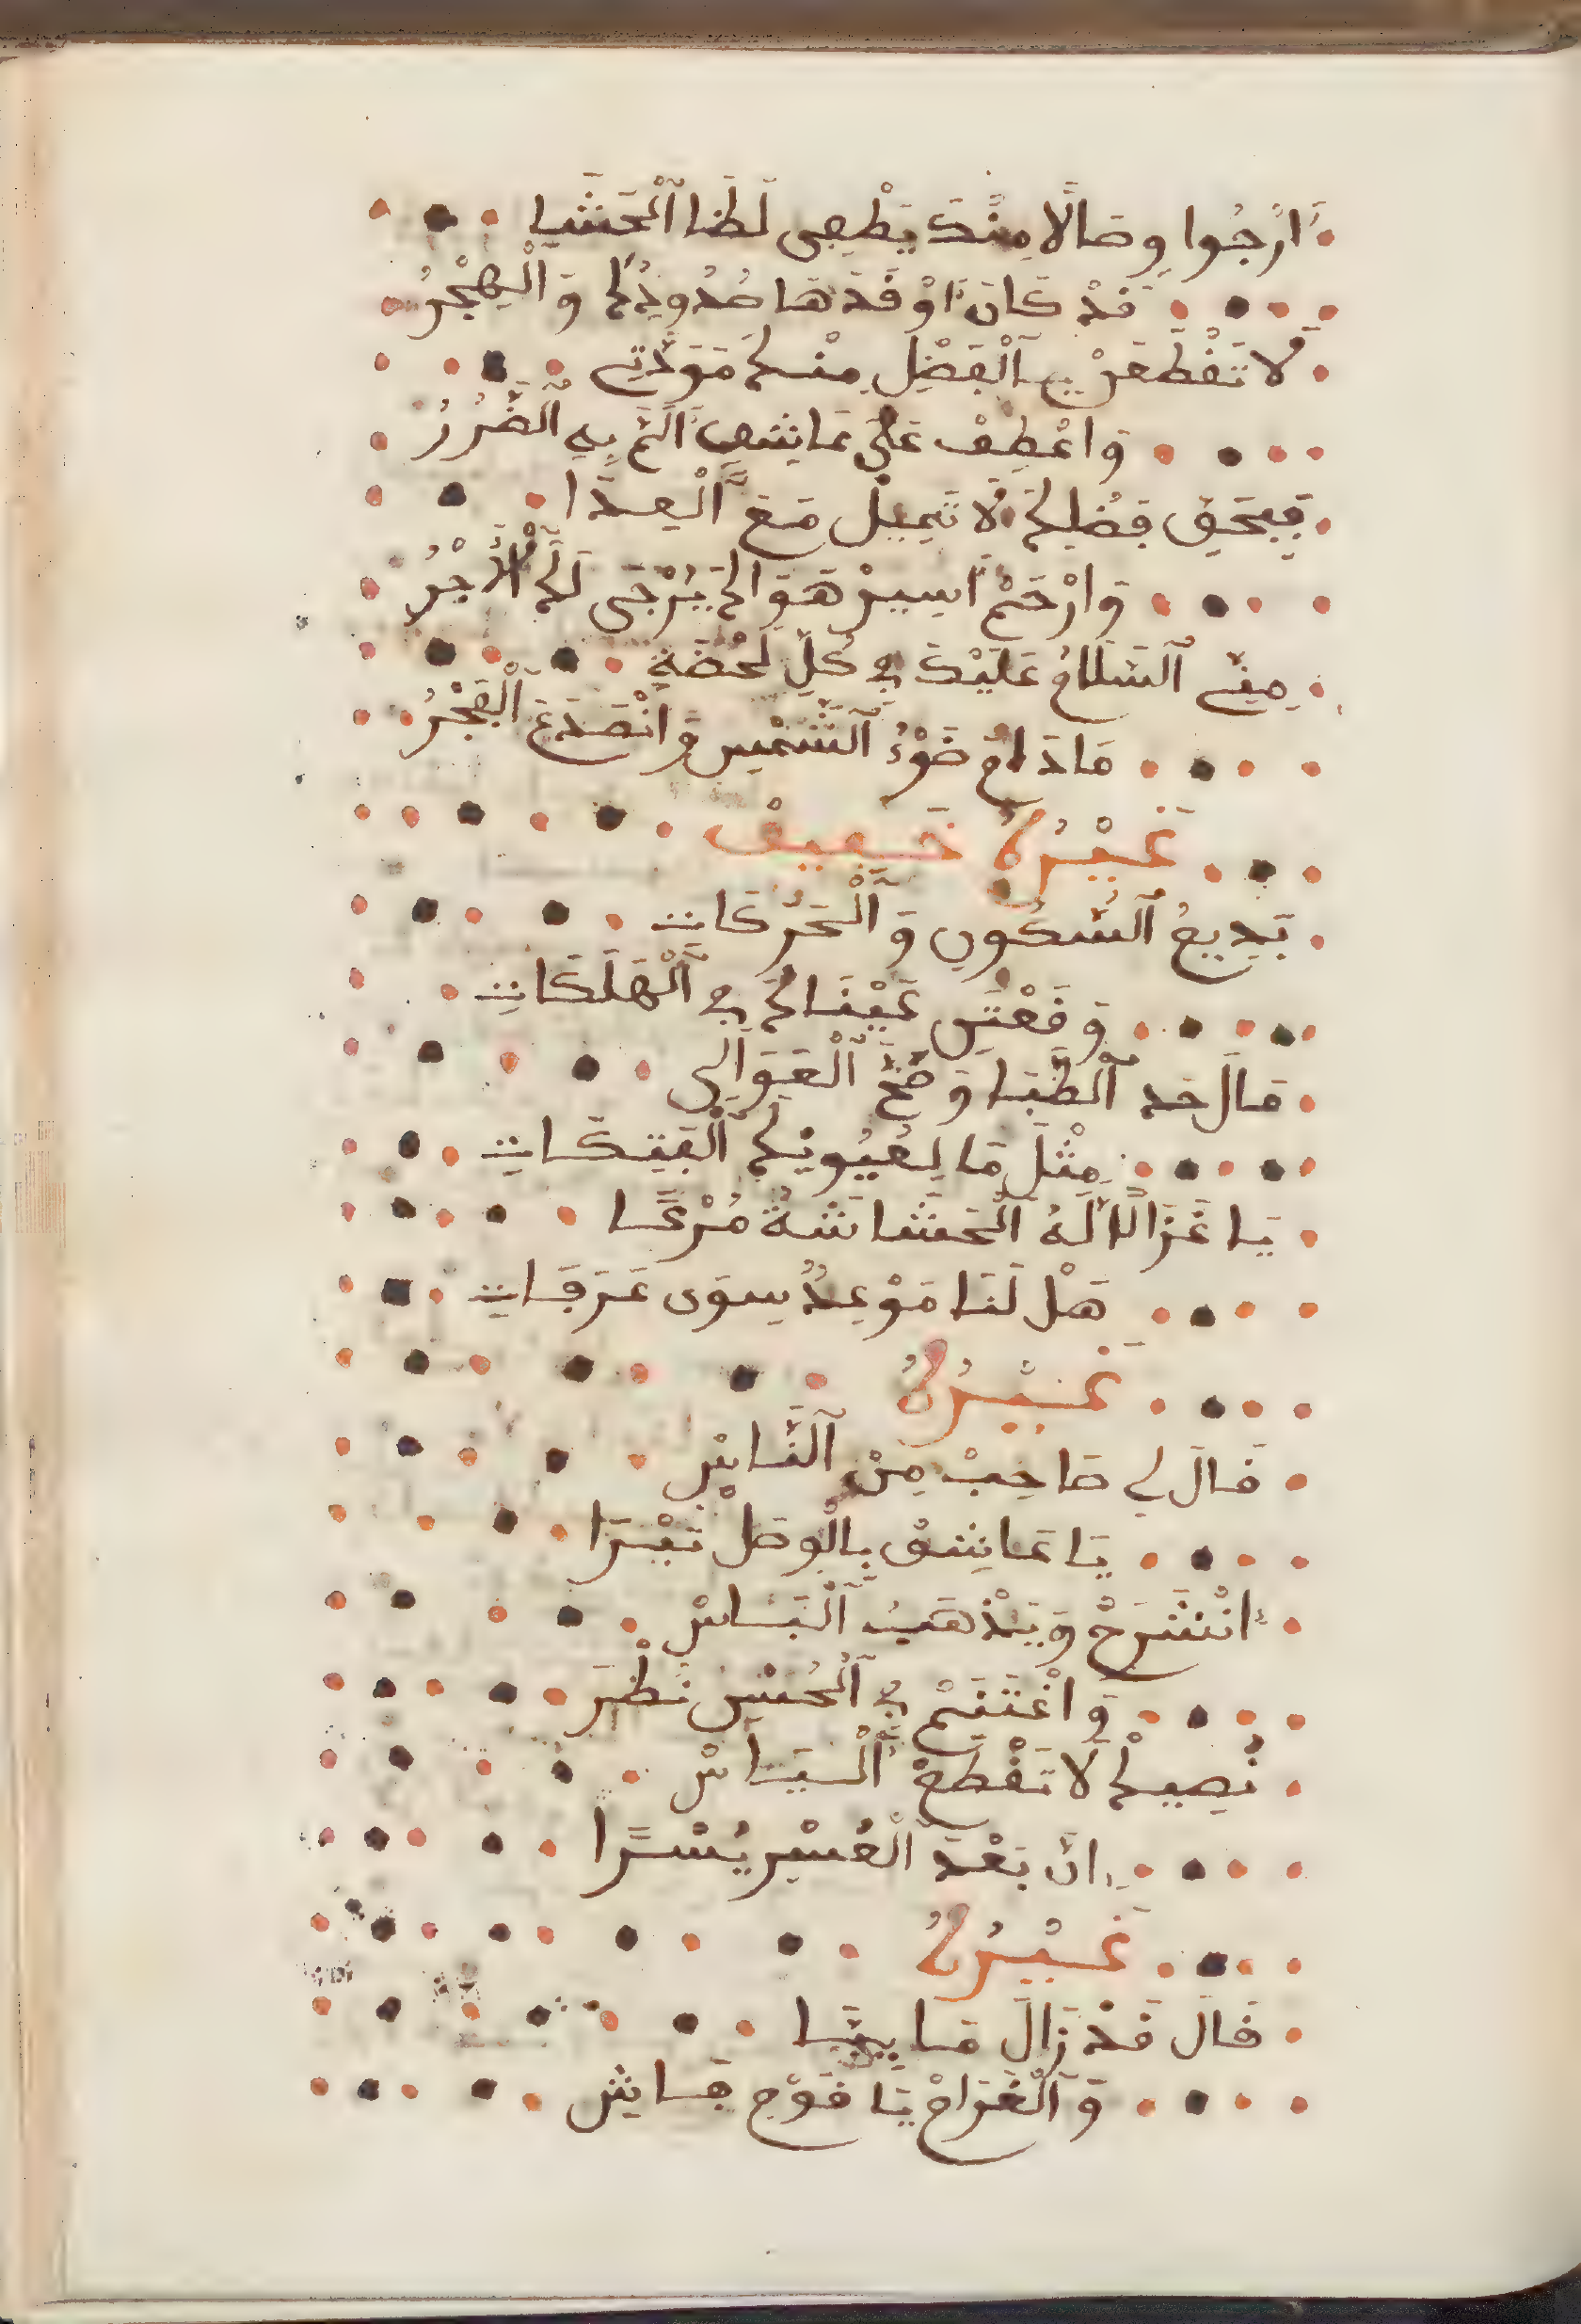 أَرْجُوا وِصَالًا مِنْكَ يَطْفِى لَظَا الْحَشَا
قَدْ كَانَ أَوْقَدَهَا صُدُودُكَ وَالْهِجْرُ
لَا تَقْطَعَنْ بِالْفَضْلِ مِنْكَ مَوَدَّتِي
وَاعْطِفْ عَلَى عَاشِقٍ أَلَمَّ بِهِ الضَّرَرُ
فَبِحَقِّ فَضْلِكَ لَا تَمِيلْ مَعَ الْعِدَا
وَارْحَمْ أَسِيرْ هَوَاكَ يُرْجَى لَكَ الْأَجْرُ
مِنِّي السَّلَامُ عَلَيْكَ فِي كُلِّ لَحْضَةٍ
مَا دَامَ ضَوْءُ الشَّمْسِ وَانْصَدَعَ الْفَجْرُ
غَيْرُهُ خَفِيفْ
بَدِيعُ السُّكُونِ وَالْحَرَكَاتِ
وَقَعْتَنِي عَيْنَاكَ فِي الْهَلَكَاتِ
مَالَ حد الظُّبَا وَ الْعَوَالِي
مِثْلَ مَا لِعُيُونِكَ الْفَتِكَاتِ
يَا غَزَالًا لَهُ الْحَشَاشَةُ مَرْعًا
هَلْ لَنَا مَوْعِدٌ سِوَى عَرَفَاتِ
غَيْرُهُ
قَالَ لِي صَاحِبْ مِنَ النَّاسْ
يَا عَاشِقْ بِالْوِصَلْ تَبْرَا
انْشَرَحْ وَيَذْهَبُ الْبَاسْ
وَاغْتَنَمْ فِي الْحُسْنِ نَظْرَ
نُصِيكَ لَا تَقْطَعْ الْيَاسْ
إِنَّ بَعْدَ الْعُسْرِ يُسْرًا
غَيْرُهُ
قَالَ قَدْ زَالَ مَا بِيَّا
وَالْغَرَامْ يَا قَوْمِ فَاشِ